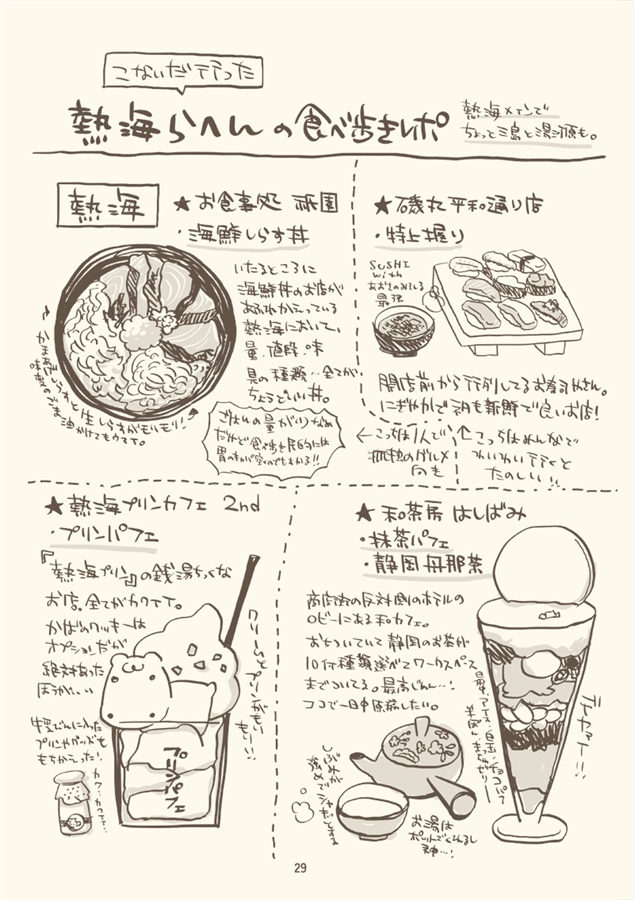 こないだ行った
熱海らへんの食べ歩きレポ
熱海メインで
ちょっと三島と湯河原も。
熱海
★お食事処 祇園
・海鮮しらす丼
いたるところに
海鮮丼のお店が
あふれかえっている
熱海において、
量、値段、味
具の種類…全てが
ちょうどいい丼。
かまあげしらすと生しらすがもりもり!!
味変のごま油かけてもウマイ。
ごはんの量が
だけど食べ歩き民的には
★磯丸 平和通り店
・特上握り
SUSHI
with
あおさのみそしる
最強
開店前から行列してるお寿司やさん。
にぎやかでネタも新鮮で良いお店!
←こっちは1人で
孤独のグルメ
向き
↑こっちはみんなで
わいわい行くと
たのしい!!
★熱海プリンカフェ 2nd
・プリンパフェ
『熱海プリン』の銭湯ちっくな
お店。全てがカワイイ。
かばのクッキーは
オプションだが
絶対あった
ほうがいい
クリームとプリンがもい
もい!!
牛乳びんに入った
プリンやグッズも
もちかった!
カワ…カワイイ…
プリンパフェ
★和茶房 はしばみ
・抹茶パフェ
・静岡 丹那茶
商店街の反対側のホテルの
ロビーにある和カフェ。
おちついていて静岡のお茶が
10何種類選べてワークスペース
までついてる。最高じゃん…!
ココで一日中原稿したい。
デーーャャーーン!!
お湯は
ポットでくれるし
神…!
29